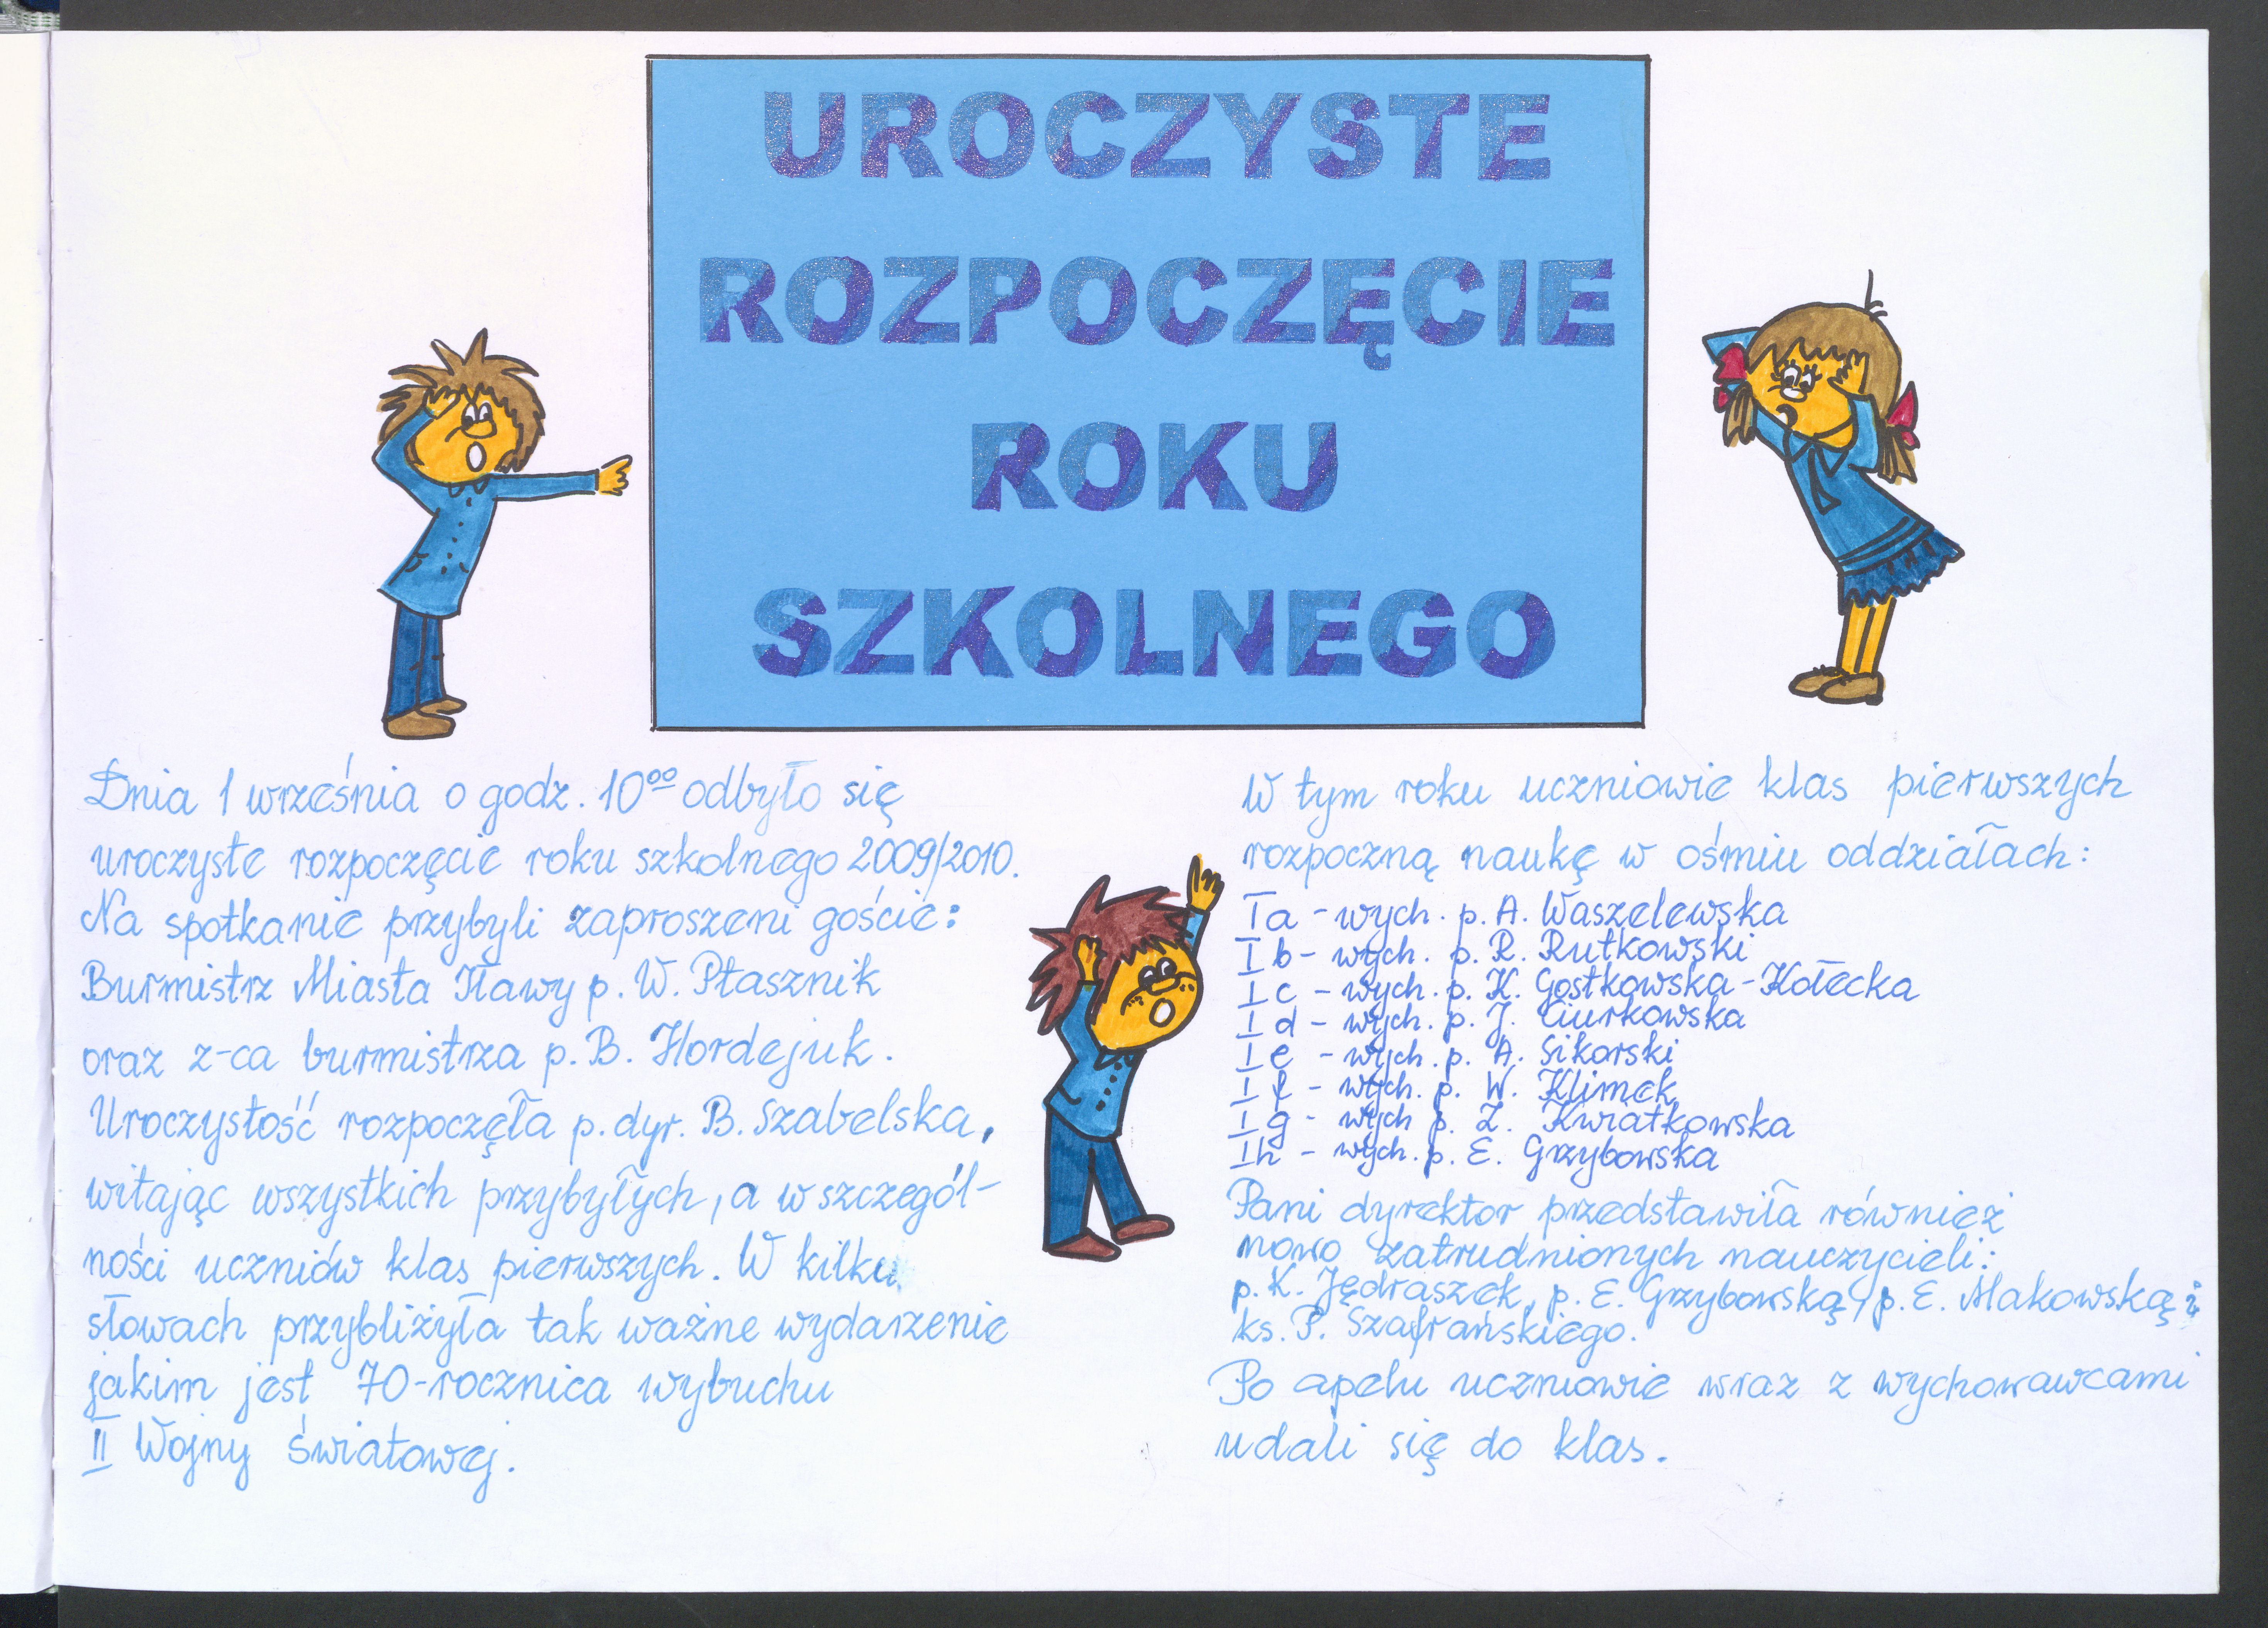 UROCZYSTE
ROZPOCZĘCIE
ROKU
SZKOLNEGO
Dnia 1 września o godz. 10⁰⁰ odbyło się
uroczyste rozpoczęcie roku szkolnego 2009/2010.
Na spotkanie przybyli zaproszeni goście:
Burmistrz Miasta Iławy p. W. Ptasznik
oraz z-ca burmistrza p. B. Hordejuk.
Uroczystość rozpoczęła p. dyr. B. Szabelska,
witając wszystkich przybyłych, a w szczegól-
ności uczniów klas pierwszych. W kilku
słowach przybliżyła tak ważne wydarzenie
jakim jest 70-rocznica wybuchu
II Wojny światowej.
W tym roku uczniowie klas pierwszych
rozpoczną naukę w ośmiu oddziałach:
Ia - wych. p. A. Waszelewska
I b - wych. p. R. Rutkowski
I c - wych. p. K. Gostkowska-Kołecka
I d - wych. p. J. Ciurkowska
I e - wych. p. A. Sikorski
I f - wych. p. W. Klimek
I g - wych p. Z. Kwiatkowska
Ih - wych. p. E. Grzybowska
Pani dyrektor przedstawiła również
nowo zatrudnionych nauczycieli:
p. K. Jędraszek, p. E. Grzybowską, p. E. Makowską i
ks. P. Szafrańskiego.
Po apelu uczniowie wraz z wychowawcami
udali się do klas.